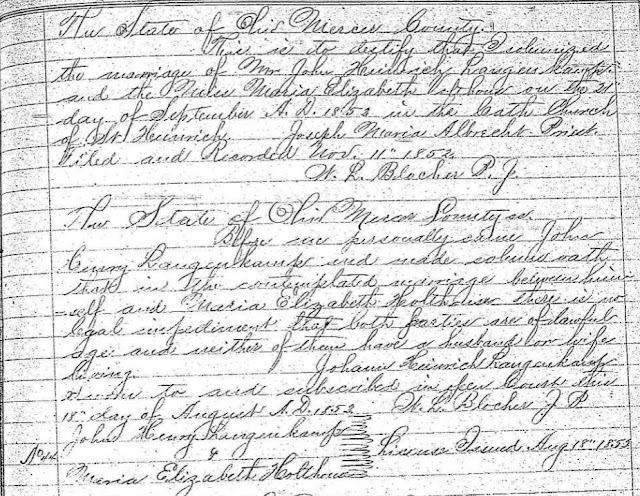 The State of Ohio Mercer County.
This is to certify that I solemnized
the marriage of Mr. John Heinrich Langenkamp.
and the Miss Maria Elizabeth on the 21
day of September A.D. 1852 in the Cath Church
of St Heinrich. Joseph Maria Albrecht Priest.
Filed and Recorded Nov. 11th 1852.
W. L. Blocher P. J.
The State of Ohio Mercer County ss.
Before me personally came John
Henry Langenkamp and made solemn oath
that in the contemplated marriage between him
-self and Maria Elizabeth Holthouse there is no
legal impediment that both parties are of lawful
age and neither of them have a husband or wife
living. Johann Heinrich Langenkamp
Sworn to and subscribed in open Court this
18th day of August A.D. 1852 W. L. Blocher J P
John Henry Langenkamp
& License Issued Aug 18th 1852
Maria Elizabeth Holthouse